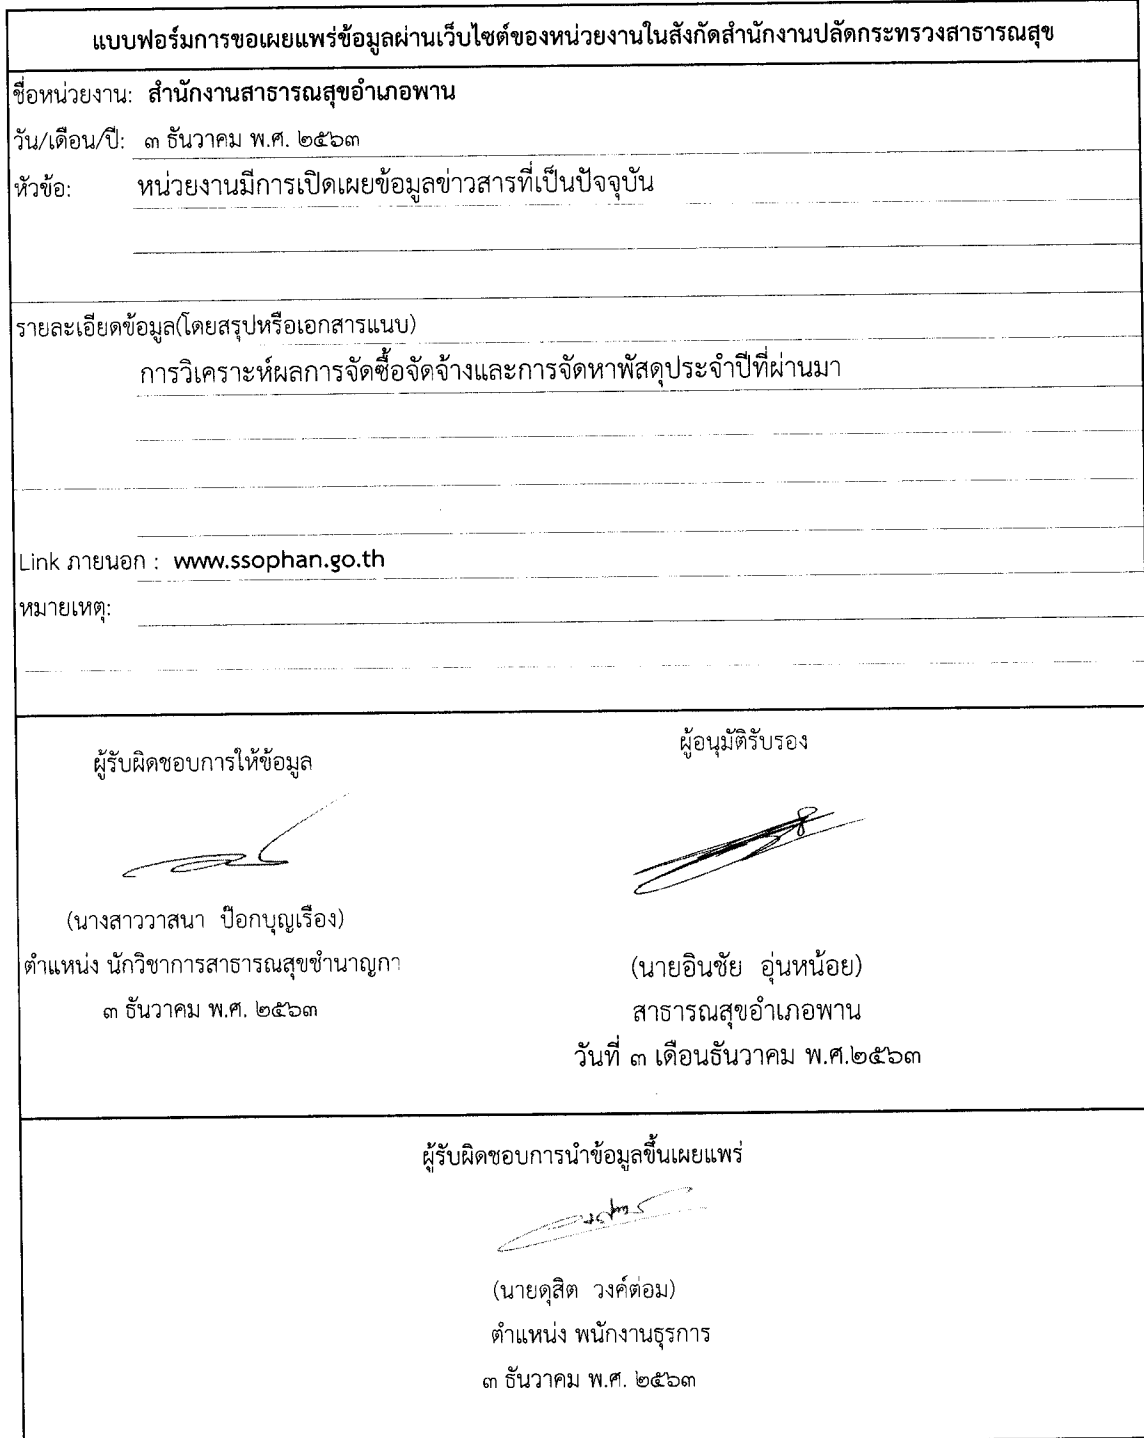 แบบฟอร์มการขอเผยแพร่ข้อมูลผ่านเว็บไซต์ของหน่วยงานในสังกัดสำนักงานปลัดกระทรวงสาธารณสุข
ชื่อหน่วยงาน: สำนักงานสาธารณสุขอำเภอพาน
วัน/เดือน/ปี: ๓ ธันวาคม พ.ศ. ๒๕๖๓
หัวข้อ: หน่วยงานมีการเปิดเผยข้อมูลข่าวสารที่เป็นปัจจุบัน
รายละเอียดข้อมูล(โดยสรุปหรือเอกสารแนบ)
การวิเคราะห์ผลการจัดซื้อจัดจ้างและการจัดหาพัสดุประจำปีที่ผ่านมา
Link ภายนอก : www.ssophan.go.th
หมายเหตุ:
ผู้รับผิดชอบการให้ข้อมูล
(นางสาววาสนา ป๊อกบุญเรือง)
ตำแหน่ง นักวิชาการสาธารณสุขชำนาญกา
๓ ธันวาคม พ.ศ. ๒๕๖๓
ผู้อนุมัติรับรอง
(นายอินชัย อุ่นหน้อย)
สาธารณสุขอำเภอพาน
วันที่ ๓ เดือนธันวาคม พ.ศ.๒๕๖๓
ผู้รับผิดชอบการนำข้อมูลขึ้นเผยแพร่
(นายดุสิต วงค์ต่อม)
ตำแหน่ง พนักงานธุรการ
๓ ธันวาคม พ.ศ. ๒๕๖๓